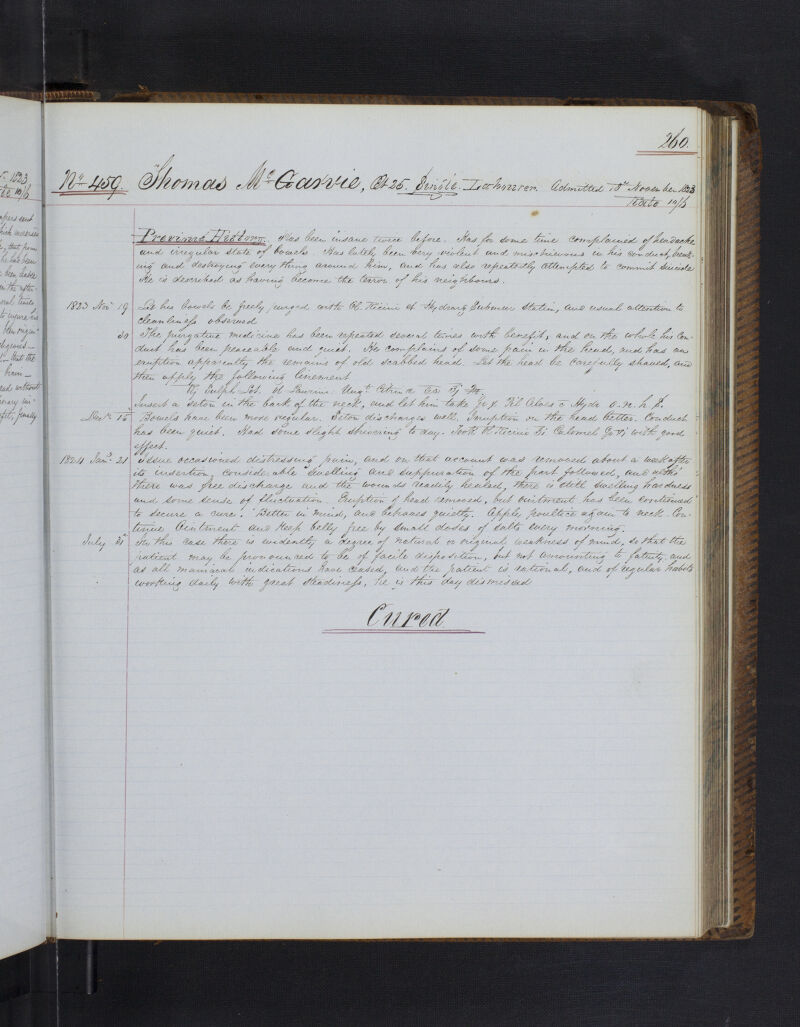 260.
No. 459. Thomas McGarvie, Æt 25. Single. Labourer Admitted 18th November 1823
Rate 10/6
Previous History. Has been insane twice before. Has for some time complained of headache
and irregular state of bowels. Has lately been very violent and mischievous in his conduct, break-
ing and destroying every thing around him, and has also repeatedly attempted to commit suicide
He is described as having become the terror of his neighbours.
1823 Nov. 19 Let his bowels be freely purged with Ol. Ricini et Hydrarg Submur statim, and usual attention to
cleanliness observed
30 The purgative medicine has been repeated several times with benefit, and on the whole his con-
duct has been peaceable and quiet. He complains of some pain in the head, and has an
eruption apparently the remains of old scabbed head. Let the head be carefully shaved, and
then apply the following liniment
Insert a seton in the back of the neck, and let him take
Decr. 15 Bowels have been more regular. Seton discharges well. Eruption on the head better. Conduct
has been quiet. Had some slight shivering to day. Took Ol. Ricini Calomel with good
effect.
1824 Jany. 21 Issue occasioned distressing pain, and on that account was removed about a week after
its insertion, considerable swelling and suppuration of the part followed, and altho'
there was free discharge and the wounds readily healed, there is still swelling hardness
and some sense of fluctuation. Eruption of head removed, but ointment has been continued
to secure a cure. Better in mind, and behaves quietly. Apply poultice again to neck. Con-
tinue Ointment and keep belly free by small doses of salts every morning.
July 21 In this case there is evidently a degree of natural or original weakness of mind, so that the
patient may be pronounced to be of facile disposition, but not amounting to fatuity, and
as all maniacal indications have ceased, and the patient is rational, and of regular habits
working daily with great steadiness, he is this day dismissed
Cured